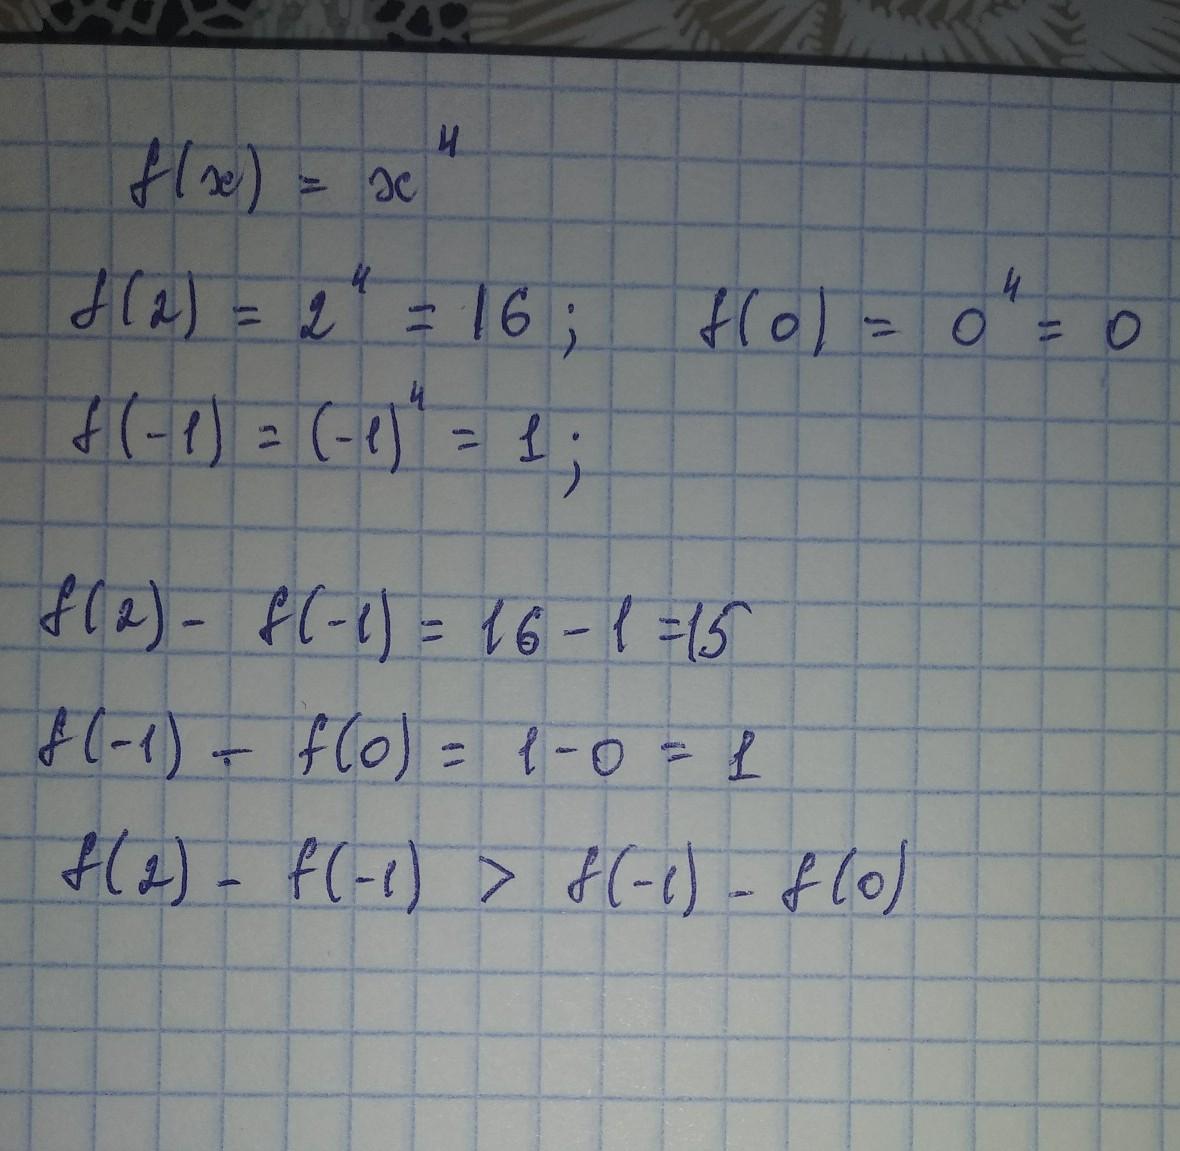 f(x) = x⁴
f(2) = 2⁴ = 16 ; f(0) = 0⁴ = 0
f(-1) = (-1)⁴ = 1 ;
f(2) - f(-1) = 16 - 1 = 15
f(-1) - f(0) = 1 - 0 = 1
f(2) - f(-1) > f(-1) - f(0)